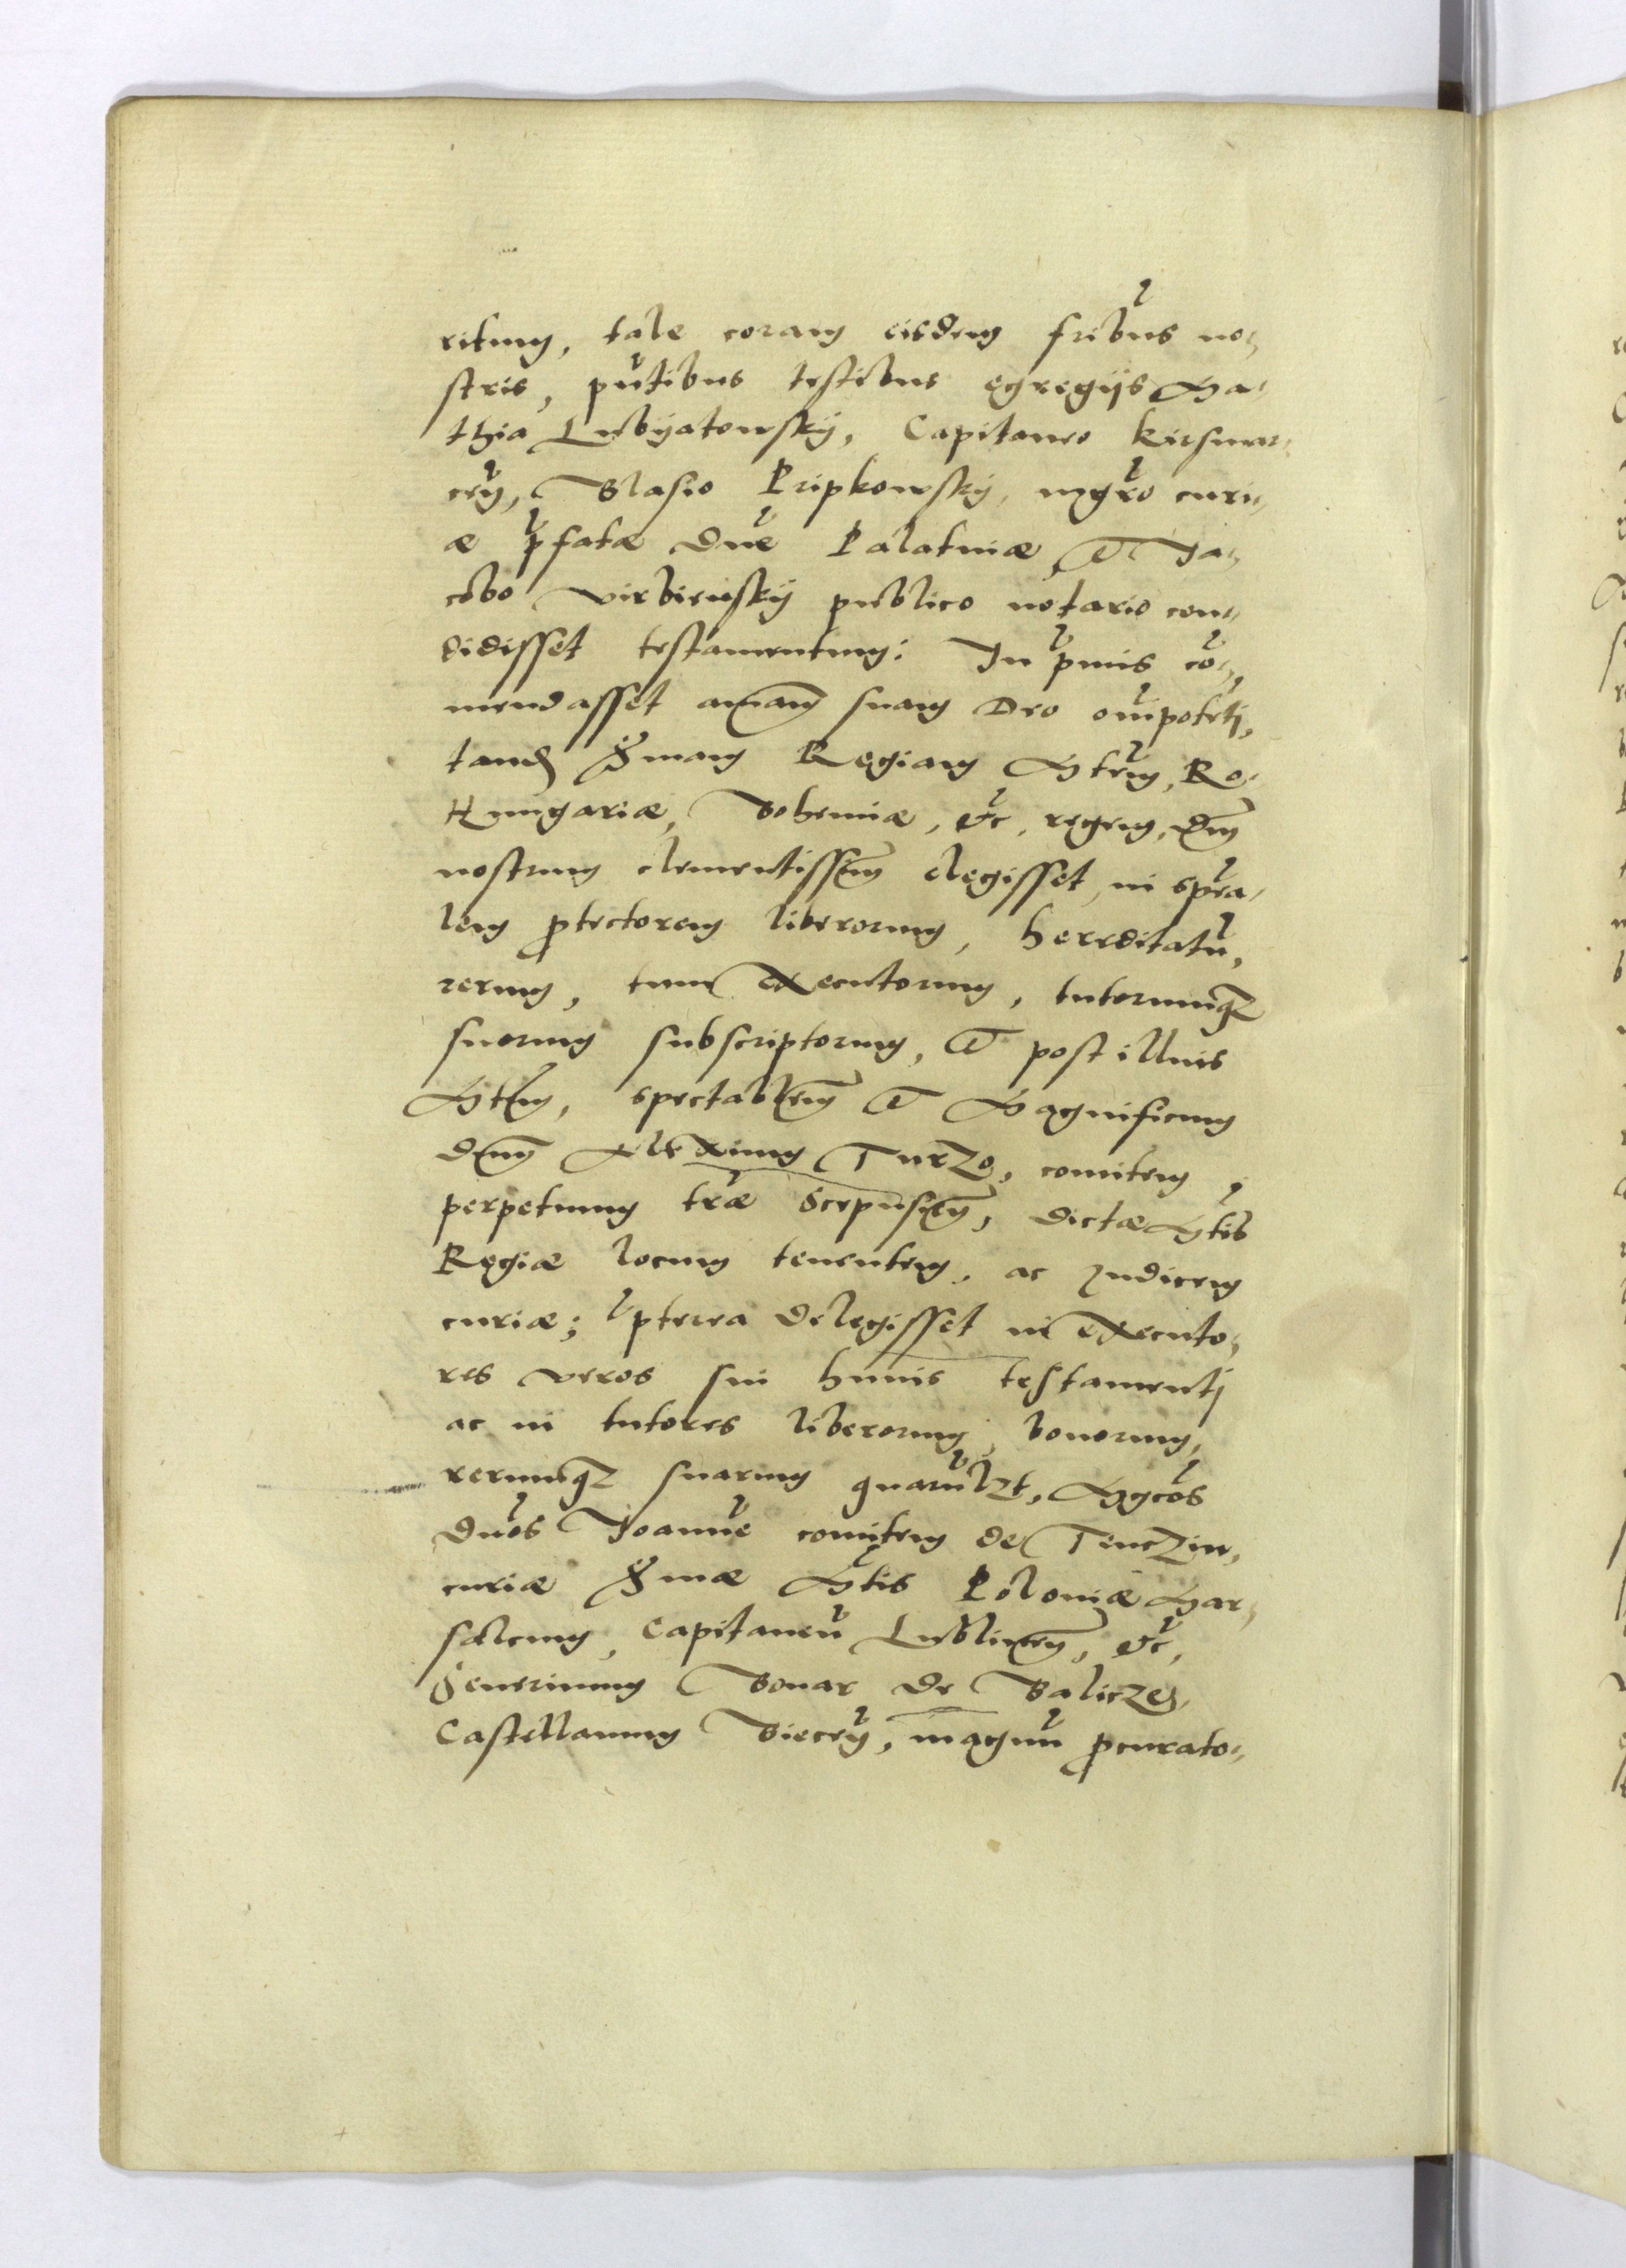 ritum, tale coram eisdem fribus no-
stris, pntibus testibus egregijs Ma-
thia Lubÿatowskÿ, Capitaneo Kiesmar-
cen, Blasio Pripkowskÿ, mgro curi-
æ pfatæ Dne Palatinæ, et Ja-
cobo Virbienskÿ publico notario con-
didisset testamentum: In pmis co-
mendasset animam suam Deo omipoteti,
tandem Smam Regiam Mtem, Ro.
Hungariæ, Bohemiæ, etc, regem, Dnm
nostrum clementissimum elegisset, in spea-
lem ptectorem liberorum, hereditatu,
rerum, tum executorum, tutorumq
suorum subscriptorum, et post illius
Mtem, spectabilem et Magnificum
Dnm Alexium Turzo, comitem
perpetuum træ Scepusien, dictæ Mtis
Regiæ locum tenentem, ac Judicem
curiæ; pterea delegisset in executo-
res veros sui huius testamentj
ac in tutores liberorum, bonorum,
rerumq suarum quarulzt, Mgcos
Dnos Joanne comitem de Tenczin,
curiæ Smæ Mtis Poloniæ Mar-
salcum, Capitaneu Lublinen, etc,
Seuerinum Bonar de Balicze,
Castellanum Biecen, magnu pcurato-